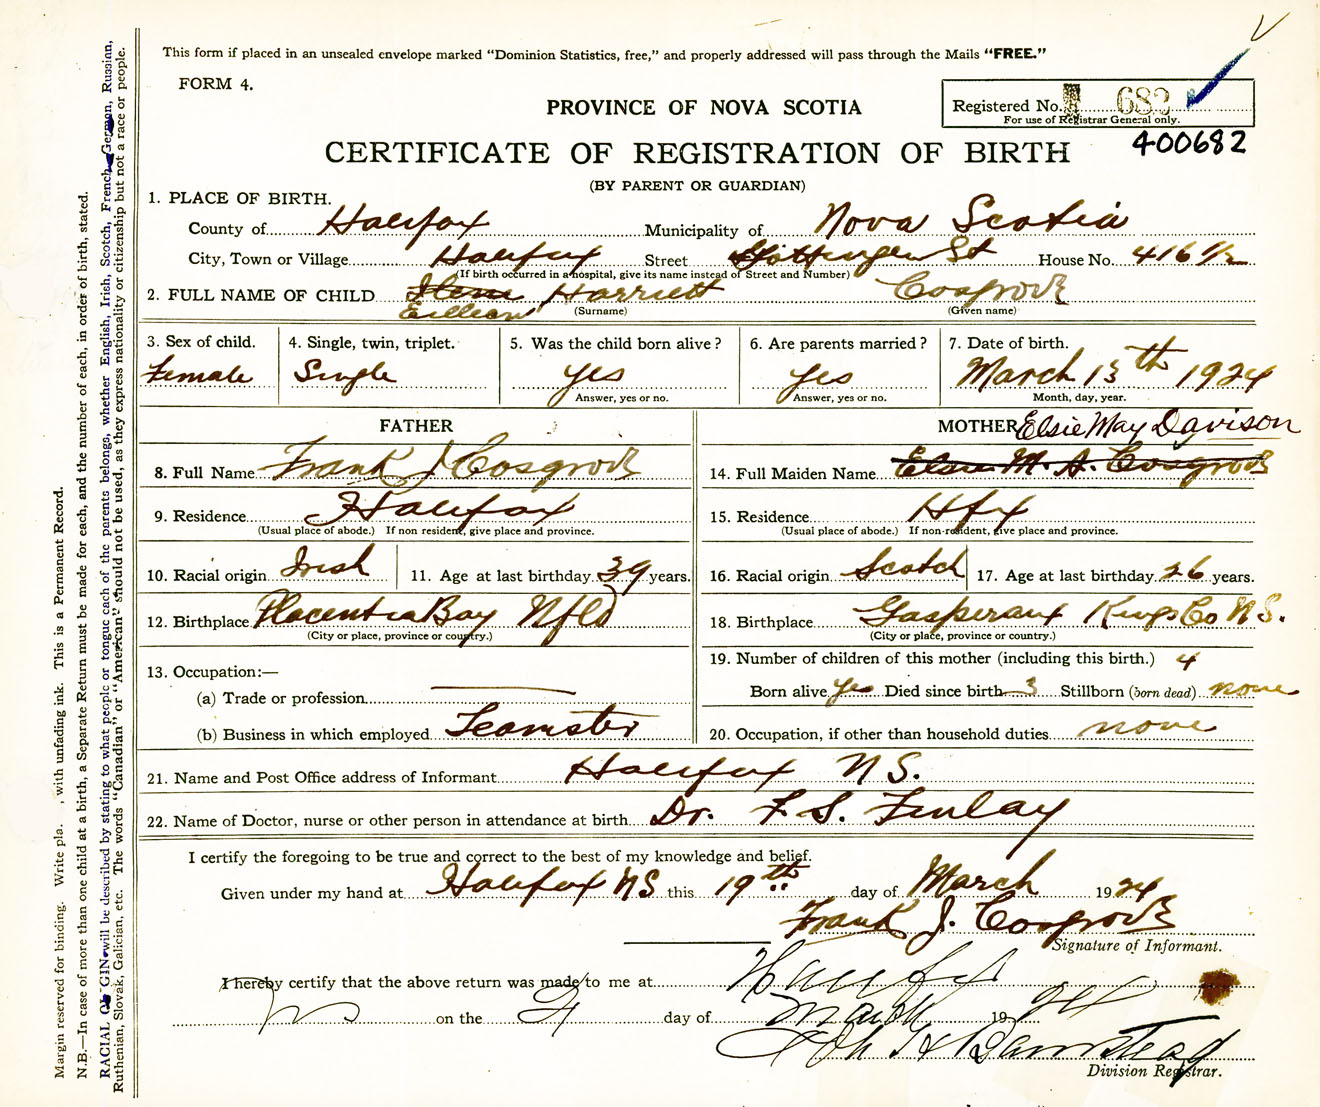 This form if placed in an unsealed envelope marked "Dominion Statistics, free," and properly addressed will pass through the Mails "FREE."
FORM 4.
PROVINCE OF NOVA SCOTIA
Registered No. 682
For use of Registrar General only.
400682
CERTIFICATE OF REGISTRATION OF BIRTH
(BY PARENT OR GUARDIAN)
1. PLACE OF BIRTH.
County of Halifax Municipality of Nova Scotia
City, Town or Village Halifax Street Gottingen St House No. 416 1/2
(If birth occurred in a hospital, give its name instead of Street and Number)
2. FULL NAME OF CHILD Harriett Cosgrove
(Surname) (Given name)
3. Sex of child. 4. Single, twin, triplet. 5. Was the child born alive? 6. Are parents married? 7. Date of birth.
Female Single yes yes March 13th 1924
Answer, yes or no. Answer, yes or no. Month, day, year.
FATHER MOTHER Elsie May Davison
8. Full Name Frank J Cosgrove 14. Full Maiden Name Elsie M. A. Cosgrove
9. Residence Halifax 15. Residence Hfx
(Usual place of abode.) If non resident, give place and province. (Usual place of abode.) If non-resident, give place and province.
10. Racial origin Irish 11. Age at last birthday 39 years. 16. Racial origin Scotch 17. Age at last birthday 26 years.
12. Birthplace Placentia Bay Nfld 18. Birthplace Gasperaux Kings Co N.S.
(City or place, province or country.) (City or place, province or country.)
13. Occupation:— 19. Number of children of this mother (including this birth.) 4
(a) Trade or profession Born alive yes Died since birth 3 Stillborn (born dead) none
(b) Business in which employed Teamster 20. Occupation, if other than household duties none
21. Name and Post Office address of Informant Halifax N S.
22. Name of Doctor, nurse or other person in attendance at birth Dr. F. S. Finlay
I certify the foregoing to be true and correct to the best of my knowledge and belief.
Given under my hand at Halifax NS this 19th day of March 1924
Frank J. Cosgrove
Signature of Informant.
I hereby certify that the above return was made to me at Halifax
on the day of March 1924
Division Registrar.
Margin reserved for binding. Write pla , with unfading ink. This is a Permanent Record.
N.B.—In case of more than one child at a birth, a Separate Return must be made for each, and the number of each, in order of birth, stated.
RACIAL ORIGIN will be described by stating to what people or tongue each of the parents belongs, whether English, Irish, Scotch, French, German, Russian,
Ruthenian, Slovak, Galician, etc. The words "Canadian" or "American" should not be used, as they express nationality or citizenship but not a race or people.